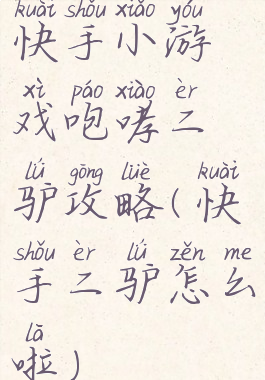 kuài shǒu xiǎo yóu
快手小游
xì páo xiào èr
戏咆哮二
lǘ gōng lüè kuài
驴攻略(快
shǒu èr lǘ zěn me
手二驴怎么
lā
啦)